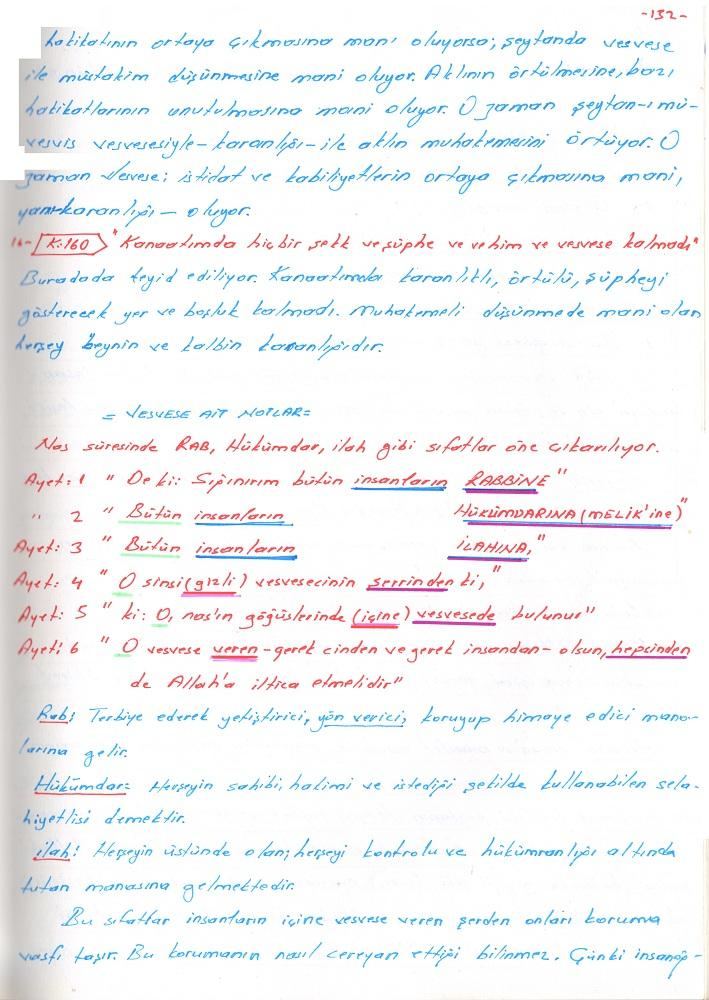 -132-
hakikatının ortaya çıkmasına mani oluyorsa; şeytanda vesvese
ile müstakim düşünmesine mani oluyor. Aklının örtülmesine, bazı
hakikatlarının unutulmasına mani oluyor. O zaman şeytan-ı mü-
vesvis vesvesesiyle-karanlığı-ile aklın muhakemesini örtüyor. O
zaman vesvese; istidat ve kabiliyetlerin ortaya çıkmasına mani,
yani-karanlığı- oluyor.
16- K:160 "Kanaatımda hiçbir şekk ve şüphe ve vehim ve vesvese kalmadı"
Buradada teyid ediliyor. Kanaatımda karanlıklı, örtülü, şüpheyi
gösterecek yer ve boşluk kalmadı. Muhakemeli düşünmede mani olan
herşey beynin ve kalbin karanlığıdır.
= VESVESE AİT NOTLAR=
Nas süresinde RAB, Hükümdar, ilah gibi sıfatlar öne çıkarılıyor.
Ayet: 1 " De ki: Sığınırım bütün insanların RABBİNE"
" 2 " Bütün insanların HÜKÜMDARINA (MELİK'ine)"
Ayet: 3 " Bütün insanların İLAHINA,"
Ayet: 4 " O sinsi (gizli) vesvesecinin şerrinden ki,"
Ayet: 5 " ki: O, nas'ın göğüslerinde (içine) vesvesede bulunur"
Ayet: 6 " O vesvese veren-gerek cinden ve gerek insandan- olsun, hepsinden
de Allah'a iltica etmelidir"
Rab: Terbiye ederek yetiştirici, yön verici, koruyup himaye edici mana-
larına gelir.
Hükümdar: Herşeyin sahibi, hakimi ve istediği şekilde kullanabilen sela-
hiyetlisi demektir.
ilah: Herşeyin üstünde olan; herşeyi kontrolu ve hükümranlığı altında
tutan manasına gelmektedir.
Bu sıfatlar insanların içine vesvese veren şerden onları koruma
vasfı taşır. Bu korumanın nasıl cereyan ettiği bilinmez. Çünki